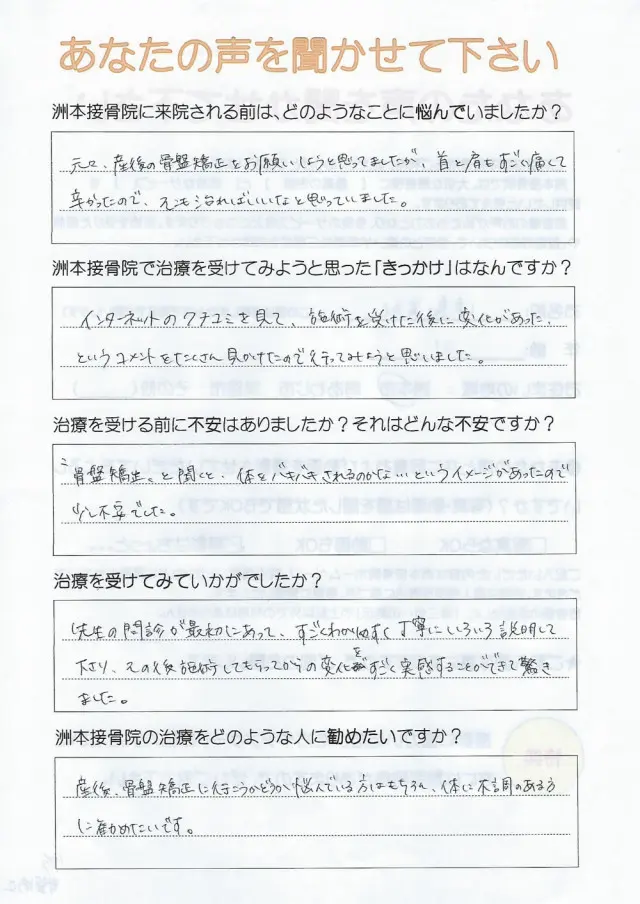 あなたの声を聞かせて下さい
洲本接骨院に来院される前は、どのようなことに悩んでいましたか？
元々、産後の骨盤矯正をお願いしようと思ってましたが、首と肩もすごく痛くて
辛かったので、そこも治ればいいなと思っていました。
洲本接骨院で治療を受けてみようと思った「きっかけ」はなんですか？
インターネットのクチコミを見て、施術を受けた後に変化があった、
というコメントをたくさん見かけたので行ってみようと思いました。
治療を受ける前に不安はありましたか？それはどんな不安ですか？
"骨盤矯正"と聞くと、体をバキバキされるのかな…というイメージがあったので
少し不安でした。
治療を受けてみていかがでしたか？
先生の問診が最初にあって、すごくわかりやすく丁寧にいろいろ説明して
下さり、その後施術してもらってからの変化をすごく実感することができて驚き
ました。
洲本接骨院の治療をどのような人に勧めたいですか？
産後、骨盤矯正に行こうかどうか悩んでいる方はもちろん、体に不調のある方
に勧めたいです。